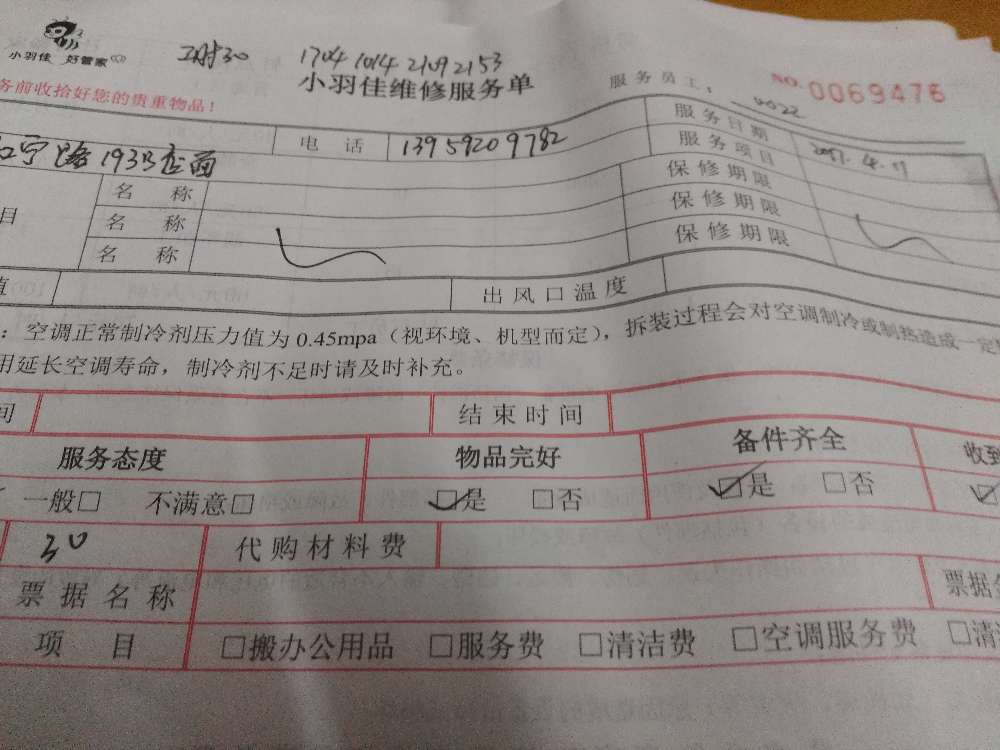 小羽佳 好管家
工时30 1704 1014 2109 2153
小羽佳维修服务单
服务员工: 0022
NO.0069476
务前收拾好您的贵重物品!
电话 13959209782 服务日期
193号店面 服务项目
名称 保修期限
目 名称 保修期限
名称 保修期限
值 出风口温度
:空调正常制冷剂压力值为0.45mpa(视环境、机型而定),拆装过程会对空调制冷或制热造成一定
用延长空调寿命,制冷剂不足时请及时补充。
间 结束时间
服务态度 物品完好 备件齐全 收到
一般□ 不满意□ ☑是 □否 ☑是 □否 ☑
30 代购材料费
票据名称 票据
项目 □搬办公用品 □服务费 □清洁费 □空调服务费 □清